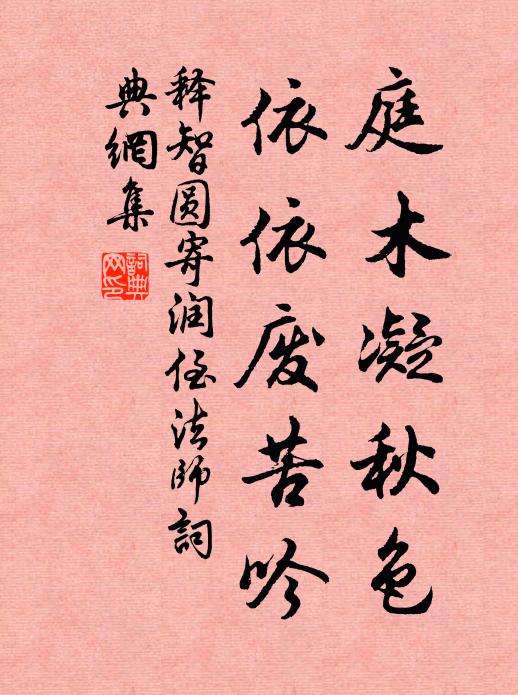 庭木凝秋色
依依废苦吟
释智圆寄润侄法师詞
典網集
詞典
网印